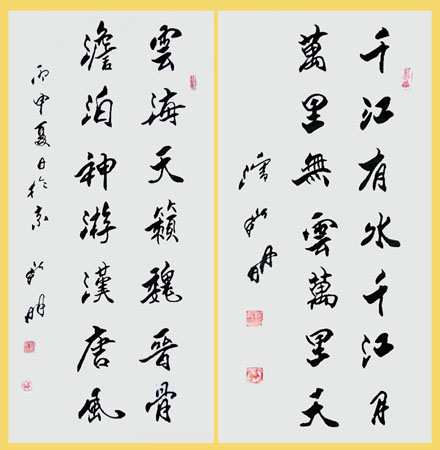 千江有水千江月
萬里無雲萬里天
明
雲海天籟魏晉骨
澹泊神游漢唐風
丙申夏日於京 明